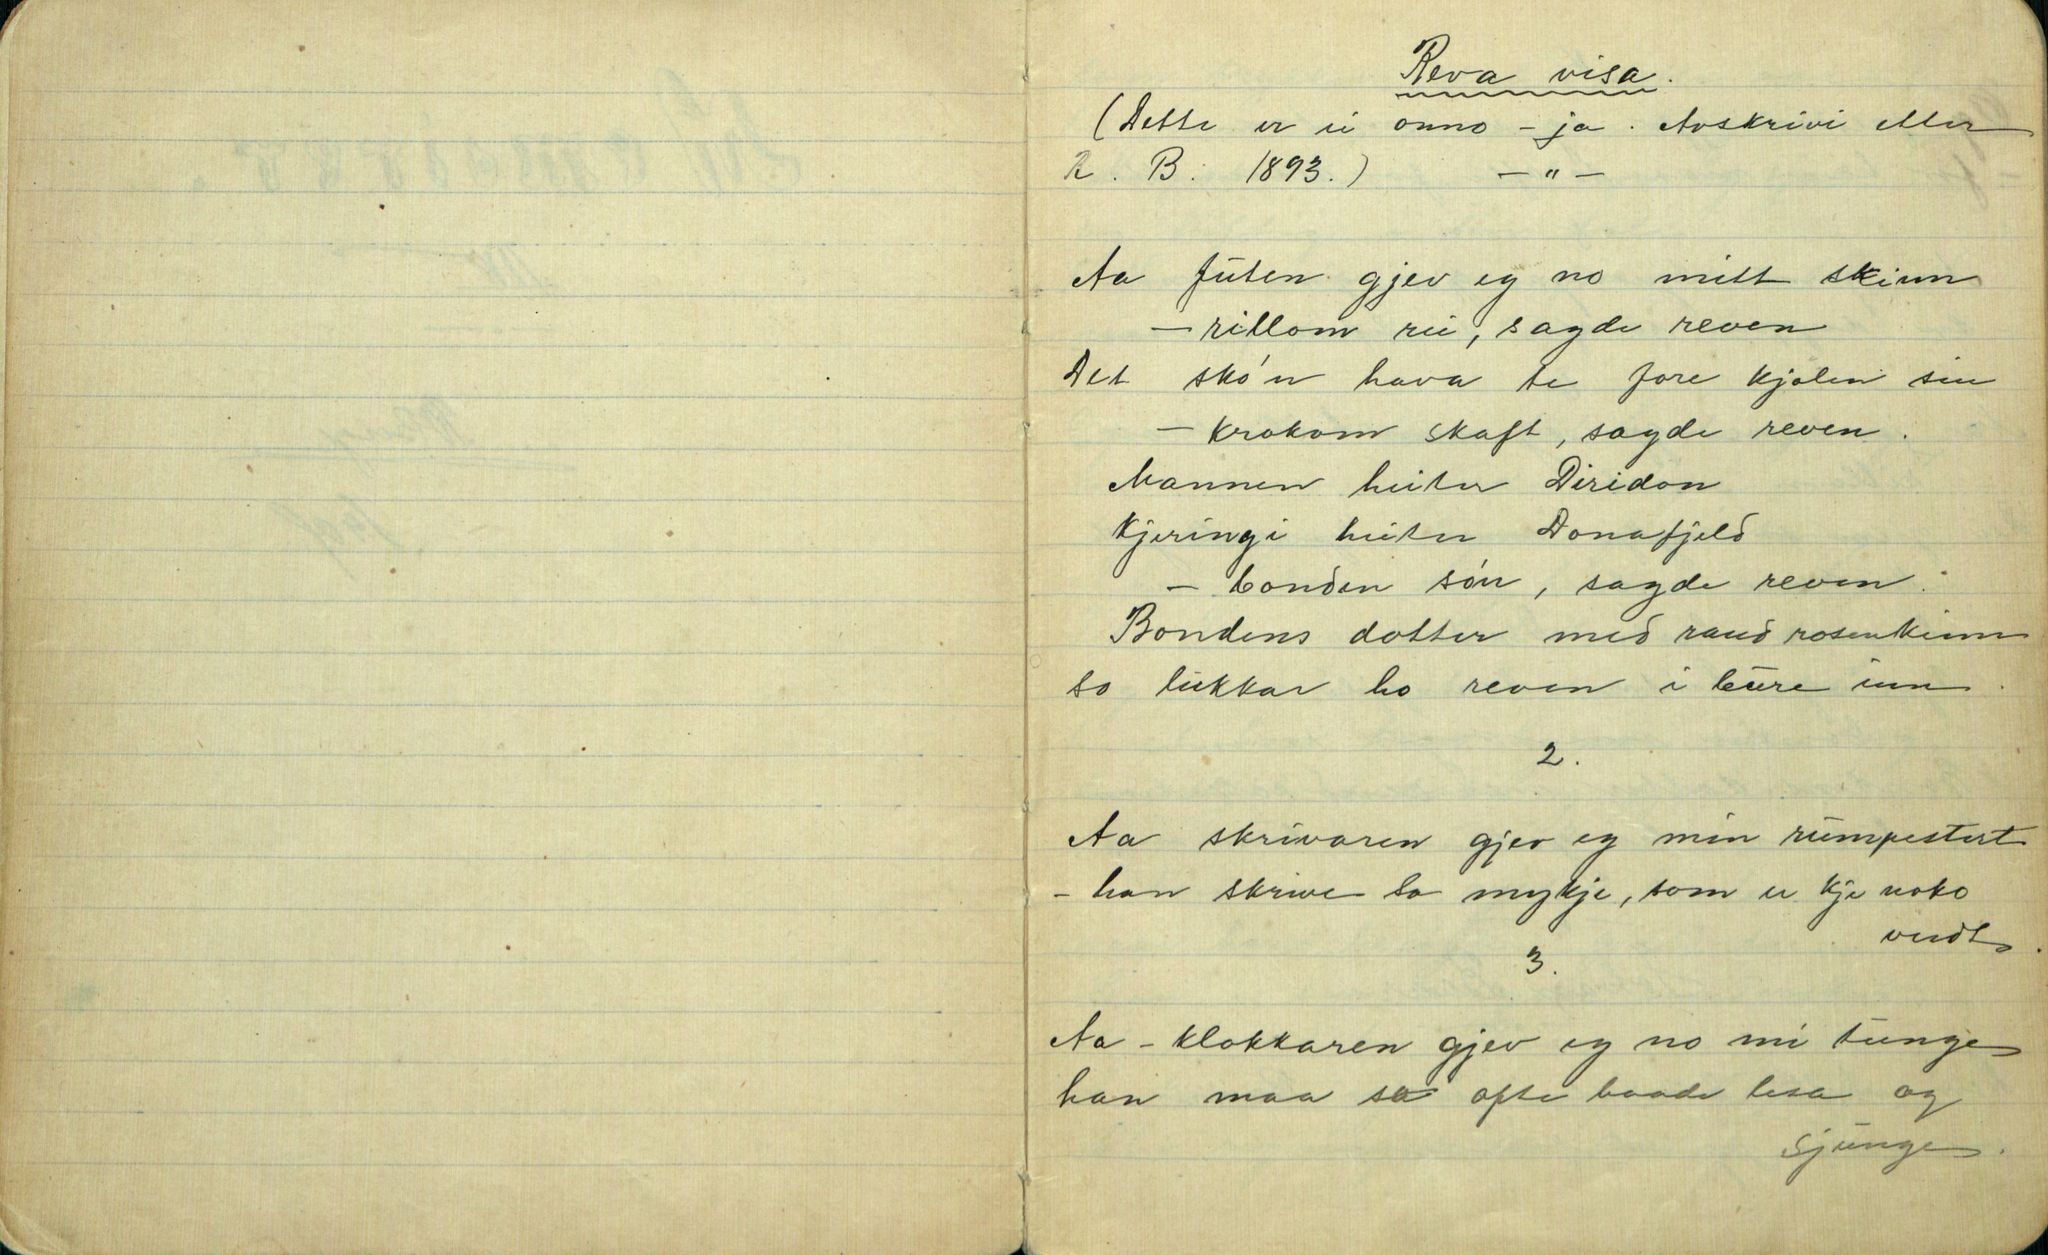 Reva visa.
(Dette er ei onno - ja. Avskrivi etter
R. B. 1893.) — " —
Aa futen gjev eg no mitt skinn
— rillom rei, sagde reven
Det skó'n hava te fore kjolen sin
— krokom skaft, sagde reven.
Mannen heiter Diridon
Kjeringi heiter Donafjeld
— bonden són, sagde reven.
Bondens dotter med raud rosenkinn
so lukkar ho reven i bure inn.
2.
Aa skrivaren gjev eg min rumpestert
- han skrive so mykje, som er kje noko
verdt.
3.
Aa - klokkaren gjev eg no mi tunge
han maa so ofte baade lesa og
sjunge.